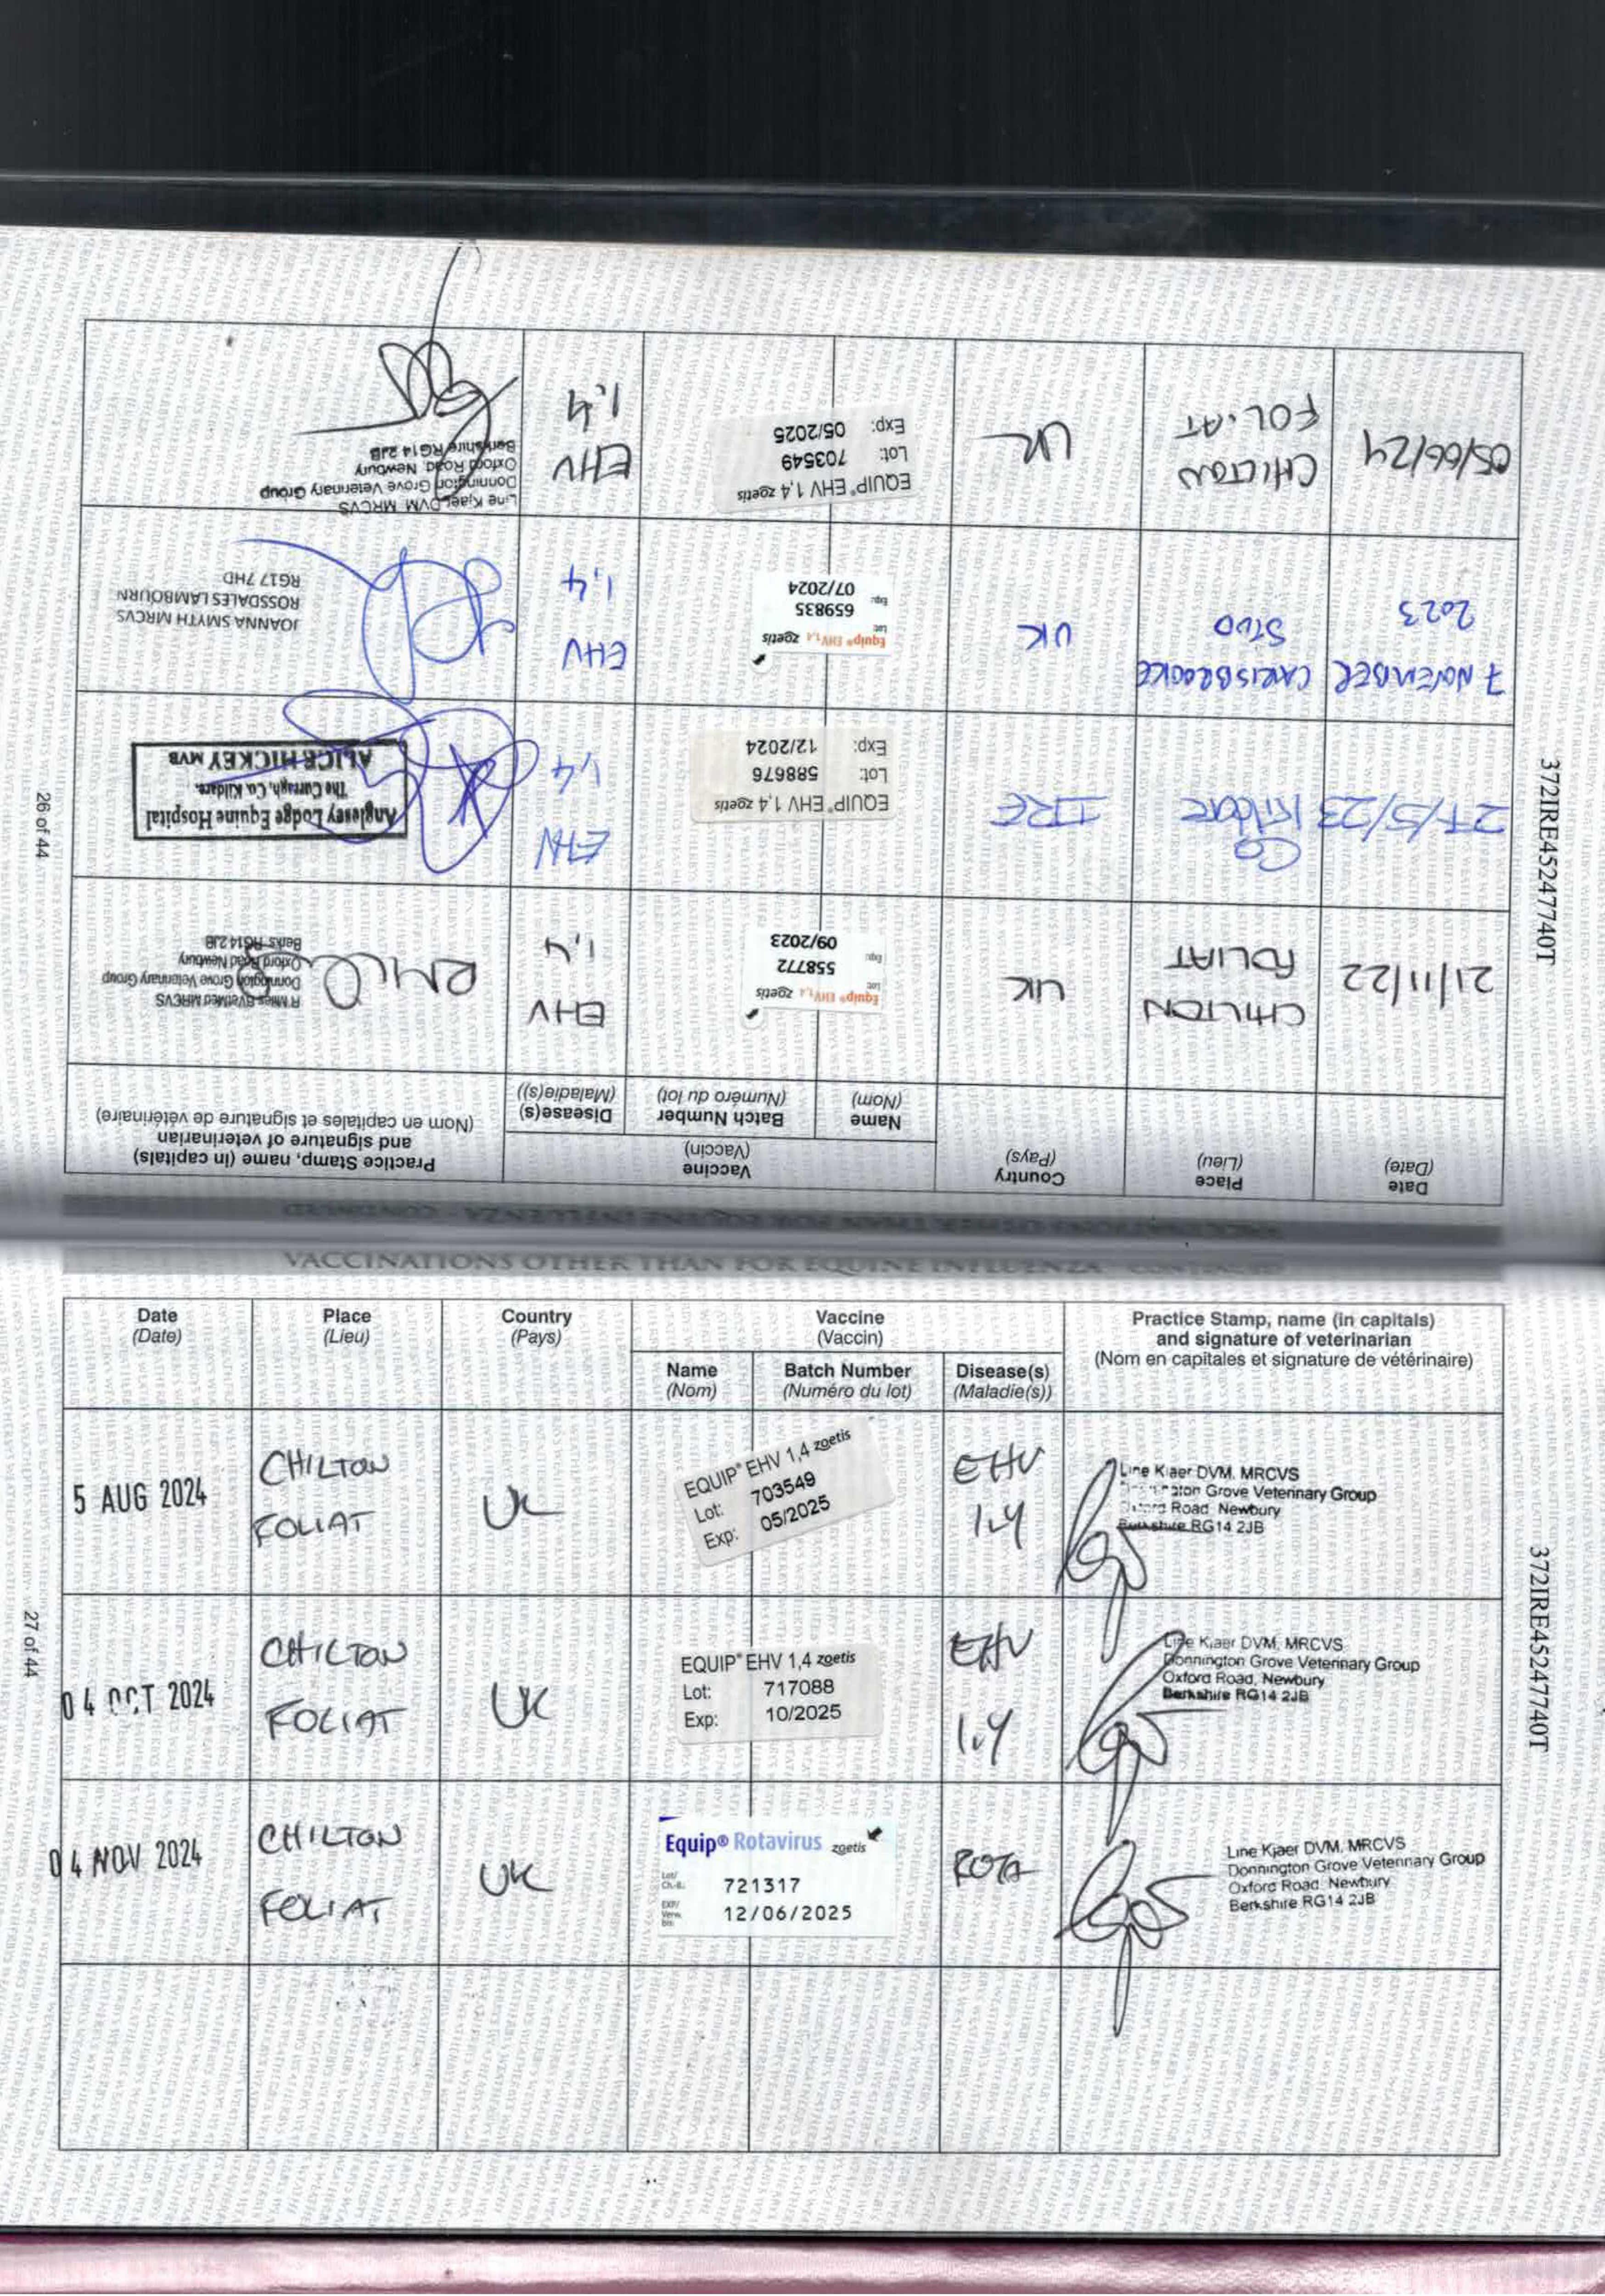 VACCINATIONS OTHER THAN FOR EQUINE INFLUENZA - CONTINUED
Date
(Date)
Place
(Lieu)
Country
(Pays)
Vaccine
(Vaccin)
Name
(Nom)
Batch Number
(Numéro du lot)
Disease(s)
(Maladie(s))
Practice Stamp, name (in capitals)
and signature of veterinarian
(Nom en capitales et signature de vétérinaire)
21/11/22
CHILTON
FOLIAT
UK
Equip® EHV 1,4 zoetis
Lot 558772
Exp. 09/2023
EHV
1,4
R Miles BVetMed MRCVS
Donnington Grove Veterinary Group
Oxford Road Newbury
Berks RG14 2JB
27/5/23
Co
Kildare
IRE
EQUIP® EHV 1,4 zoetis
Lot: 588676
Exp: 12/2024
EHV
1,4
Anglesey Lodge Equine Hospital
The Curragh, Co. Kildare.
ALICE HICKEY MVB
7 NOVEMBER
2023
CARISBROOKE
STUD
UK
Equip® EHV 1,4 zoetis
Lot 659835
Exp. 07/2024
EHV
1,4
JOANNA SMYTH MRCVS
ROSSDALES LAMBOURN
RG17 7HD
05/06/24
CHILTON
FOLIAT
UK
EQUIP® EHV 1,4 zoetis
Lot: 703549
Exp: 05/2025
EHV
1,4
Line Kjaer DVM MRCVS
Donnington Grove Veterinary Group
Oxford Road, Newbury
Berkshire RG14 2JB
26 of 44
372IRE45247740T
VACCINATIONS OTHER THAN FOR EQUINE INFLUENZA - CONTINUED
Date
(Date)
Place
(Lieu)
Country
(Pays)
Vaccine
(Vaccin)
Name
(Nom)
Batch Number
(Numéro du lot)
Disease(s)
(Maladie(s))
Practice Stamp, name (in capitals)
and signature of veterinarian
(Nom en capitales et signature de vétérinaire)
5 AUG 2024
CHILTON
FOLIAT
UK
EQUIP® EHV 1,4 zoetis
Lot: 703549
Exp: 05/2025
EHV
1,4
Line Kjaer DVM, MRCVS
Donnington Grove Veterinary Group
Oxford Road, Newbury
Berkshire RG14 2JB
04 OCT 2024
CHILTON
FOLIAT
UK
EQUIP® EHV 1,4 zoetis
Lot: 717088
Exp: 10/2025
EHV
1,4
Line Kjaer DVM, MRCVS
Donnington Grove Veterinary Group
Oxford Road, Newbury
Berkshire RG14 2JB
04 NOV 2024
CHILTON
FOLIAT
UK
Equip® Rotavirus zoetis
Lot/ Ch.-B.: 721317
EXP/ Verw. bis: 12/06/2025
ROTA
Line Kjaer DVM, MRCVS
Donnington Grove Veterinary Group
Oxford Road, Newbury
Berkshire RG14 2JB
27 of 44
372IRE45247740T